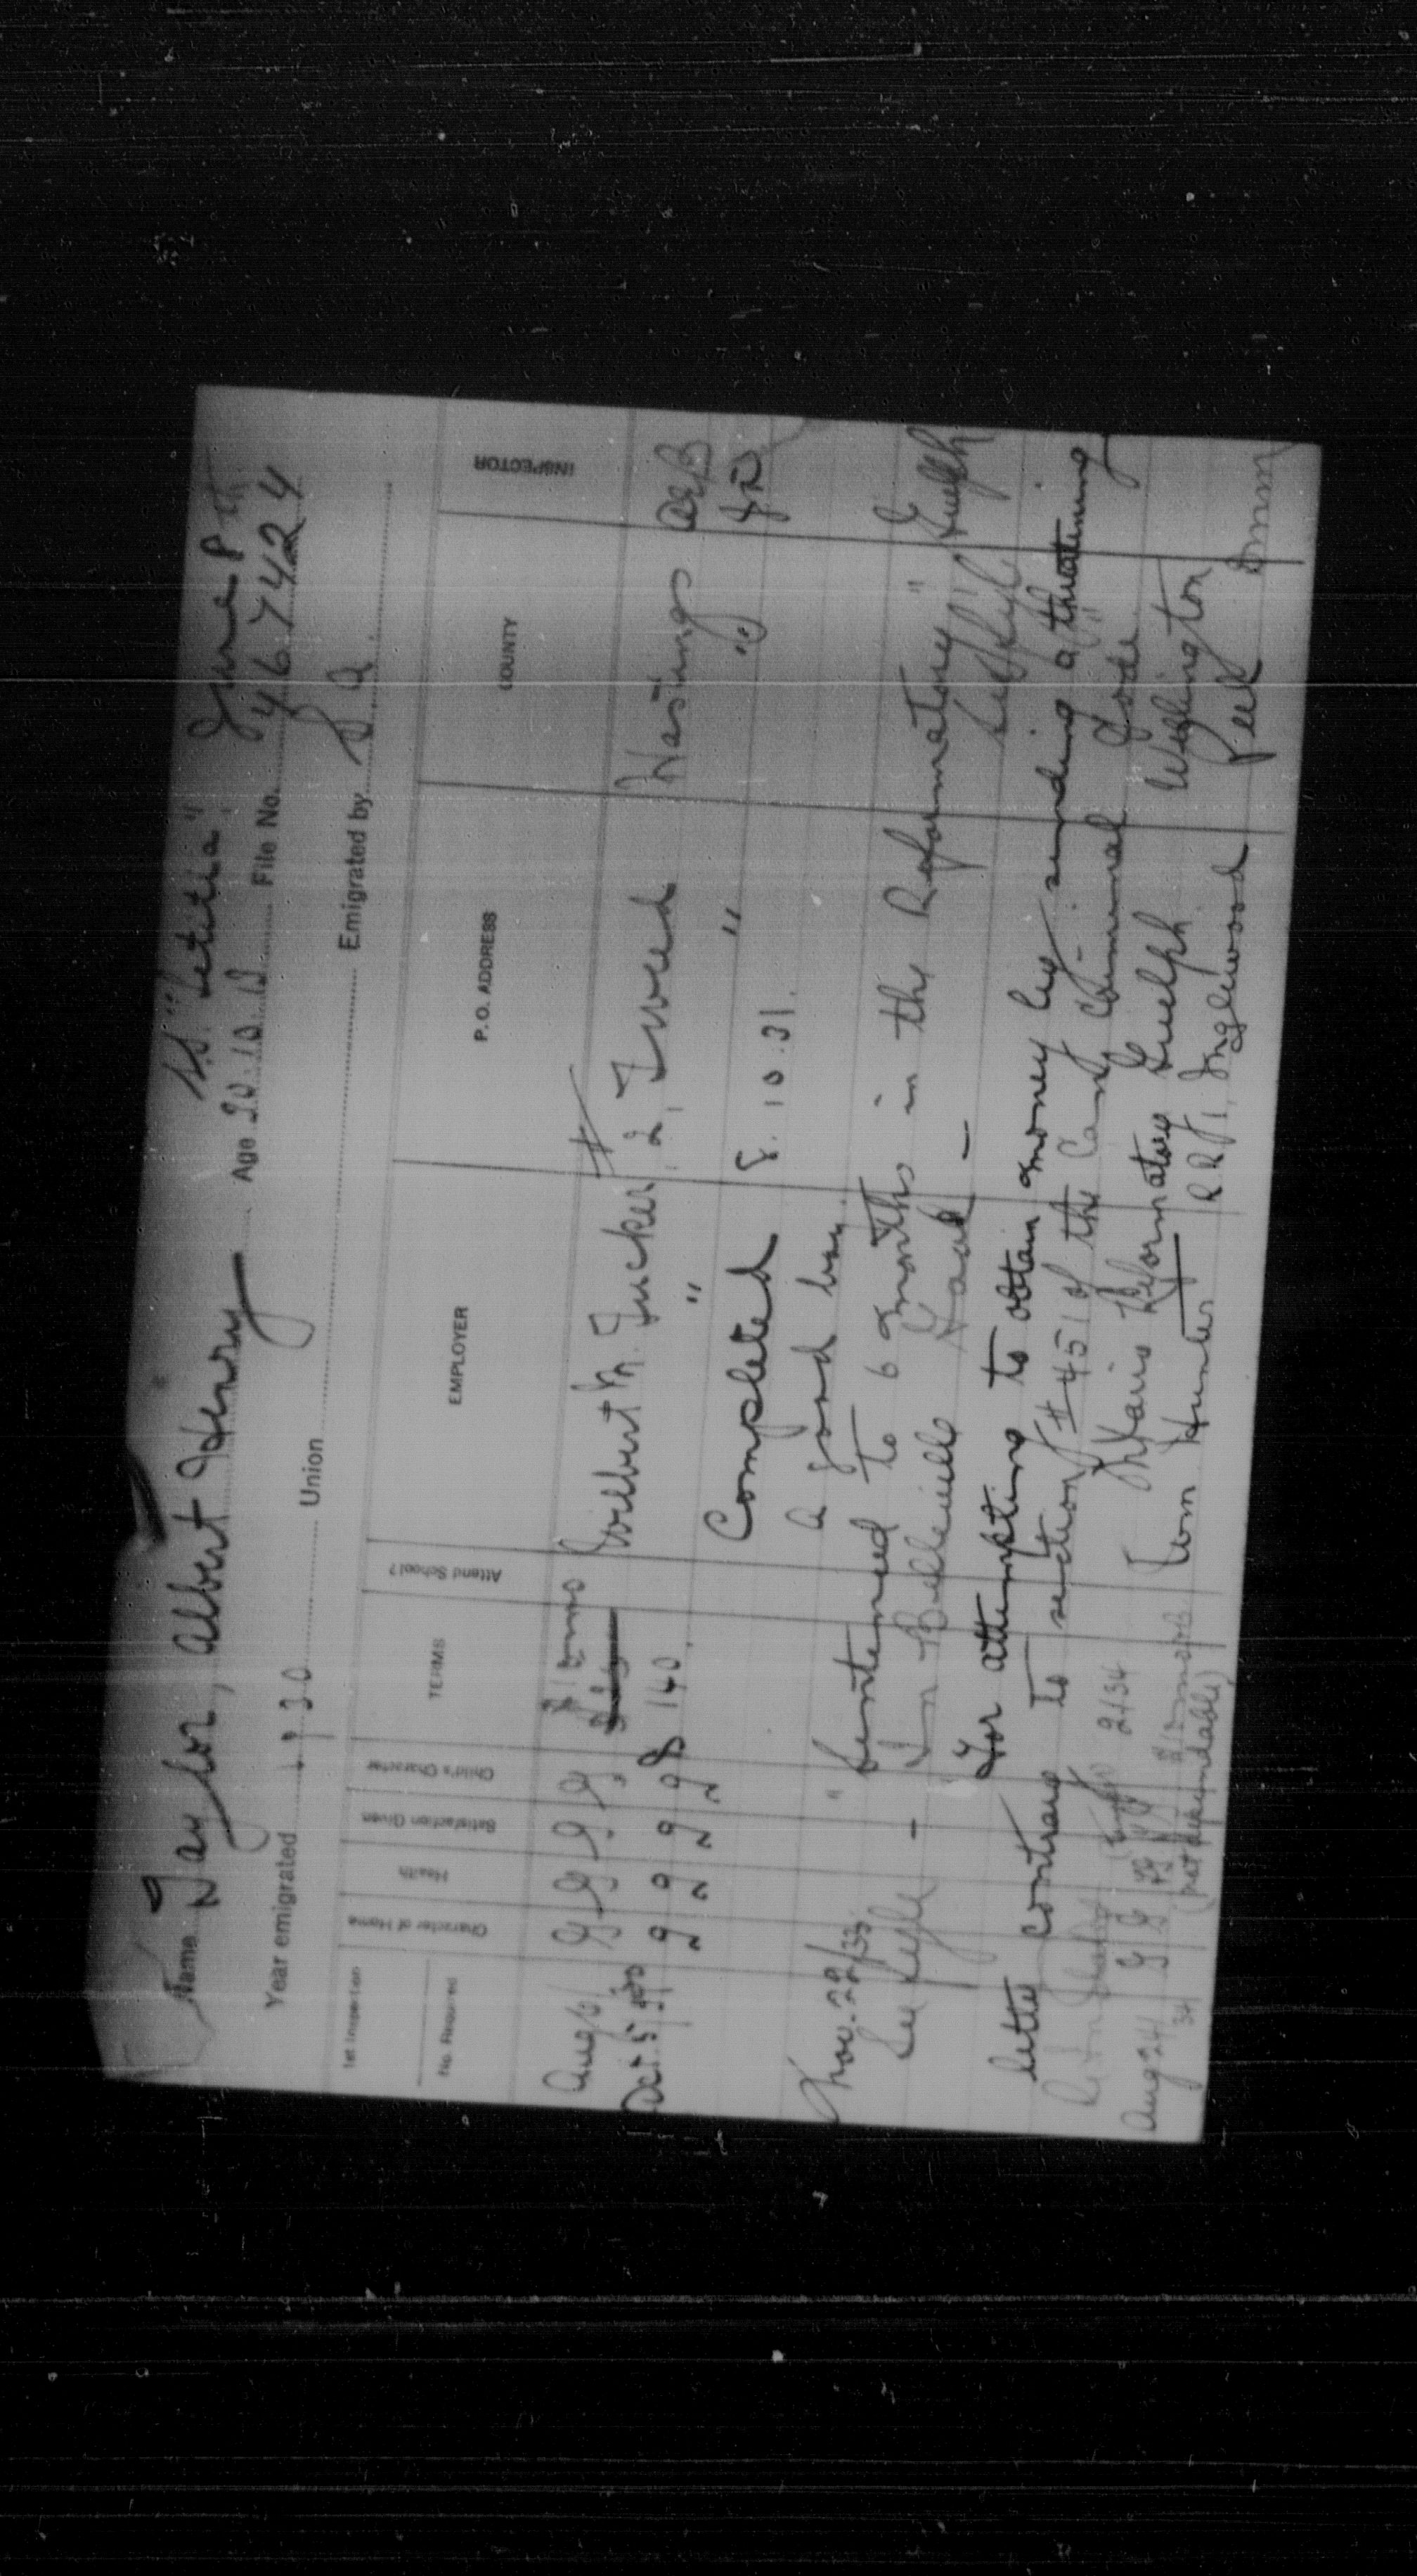 Name Taylor, Albert Henry S.S. "Letitia" June
Year emigrated 1930 Union Age File No. 467424
Emigrated by S. A.
1st Inspection
No. Required
Character of Home
Health
Satisfaction Given
Child's Character
TERMS
Attend School?
EMPLOYER
P. O. ADDRESS
COUNTY
INSPECTOR
Aug G G G G $10 mo Wilbert M. Tucker #2, Tweed Hastings
Oct. 5 9 9 9 9 $140 " " "
Completed 8.10.31.
a good boy
Nov. 22/33 " Sentenced to 6 months in the Reformatory Guelph
See Kyle - In Belleville Gaol - See Kyle
For attempting to obtain money by sending a threatening
letter contrary to section #451 of the Can. Criminal Code
2/34 Reformatory Guelph Wellington
Aug 24 34 G G Wm Hunter R.R. 1, Inglewood Peel
(not dependable)